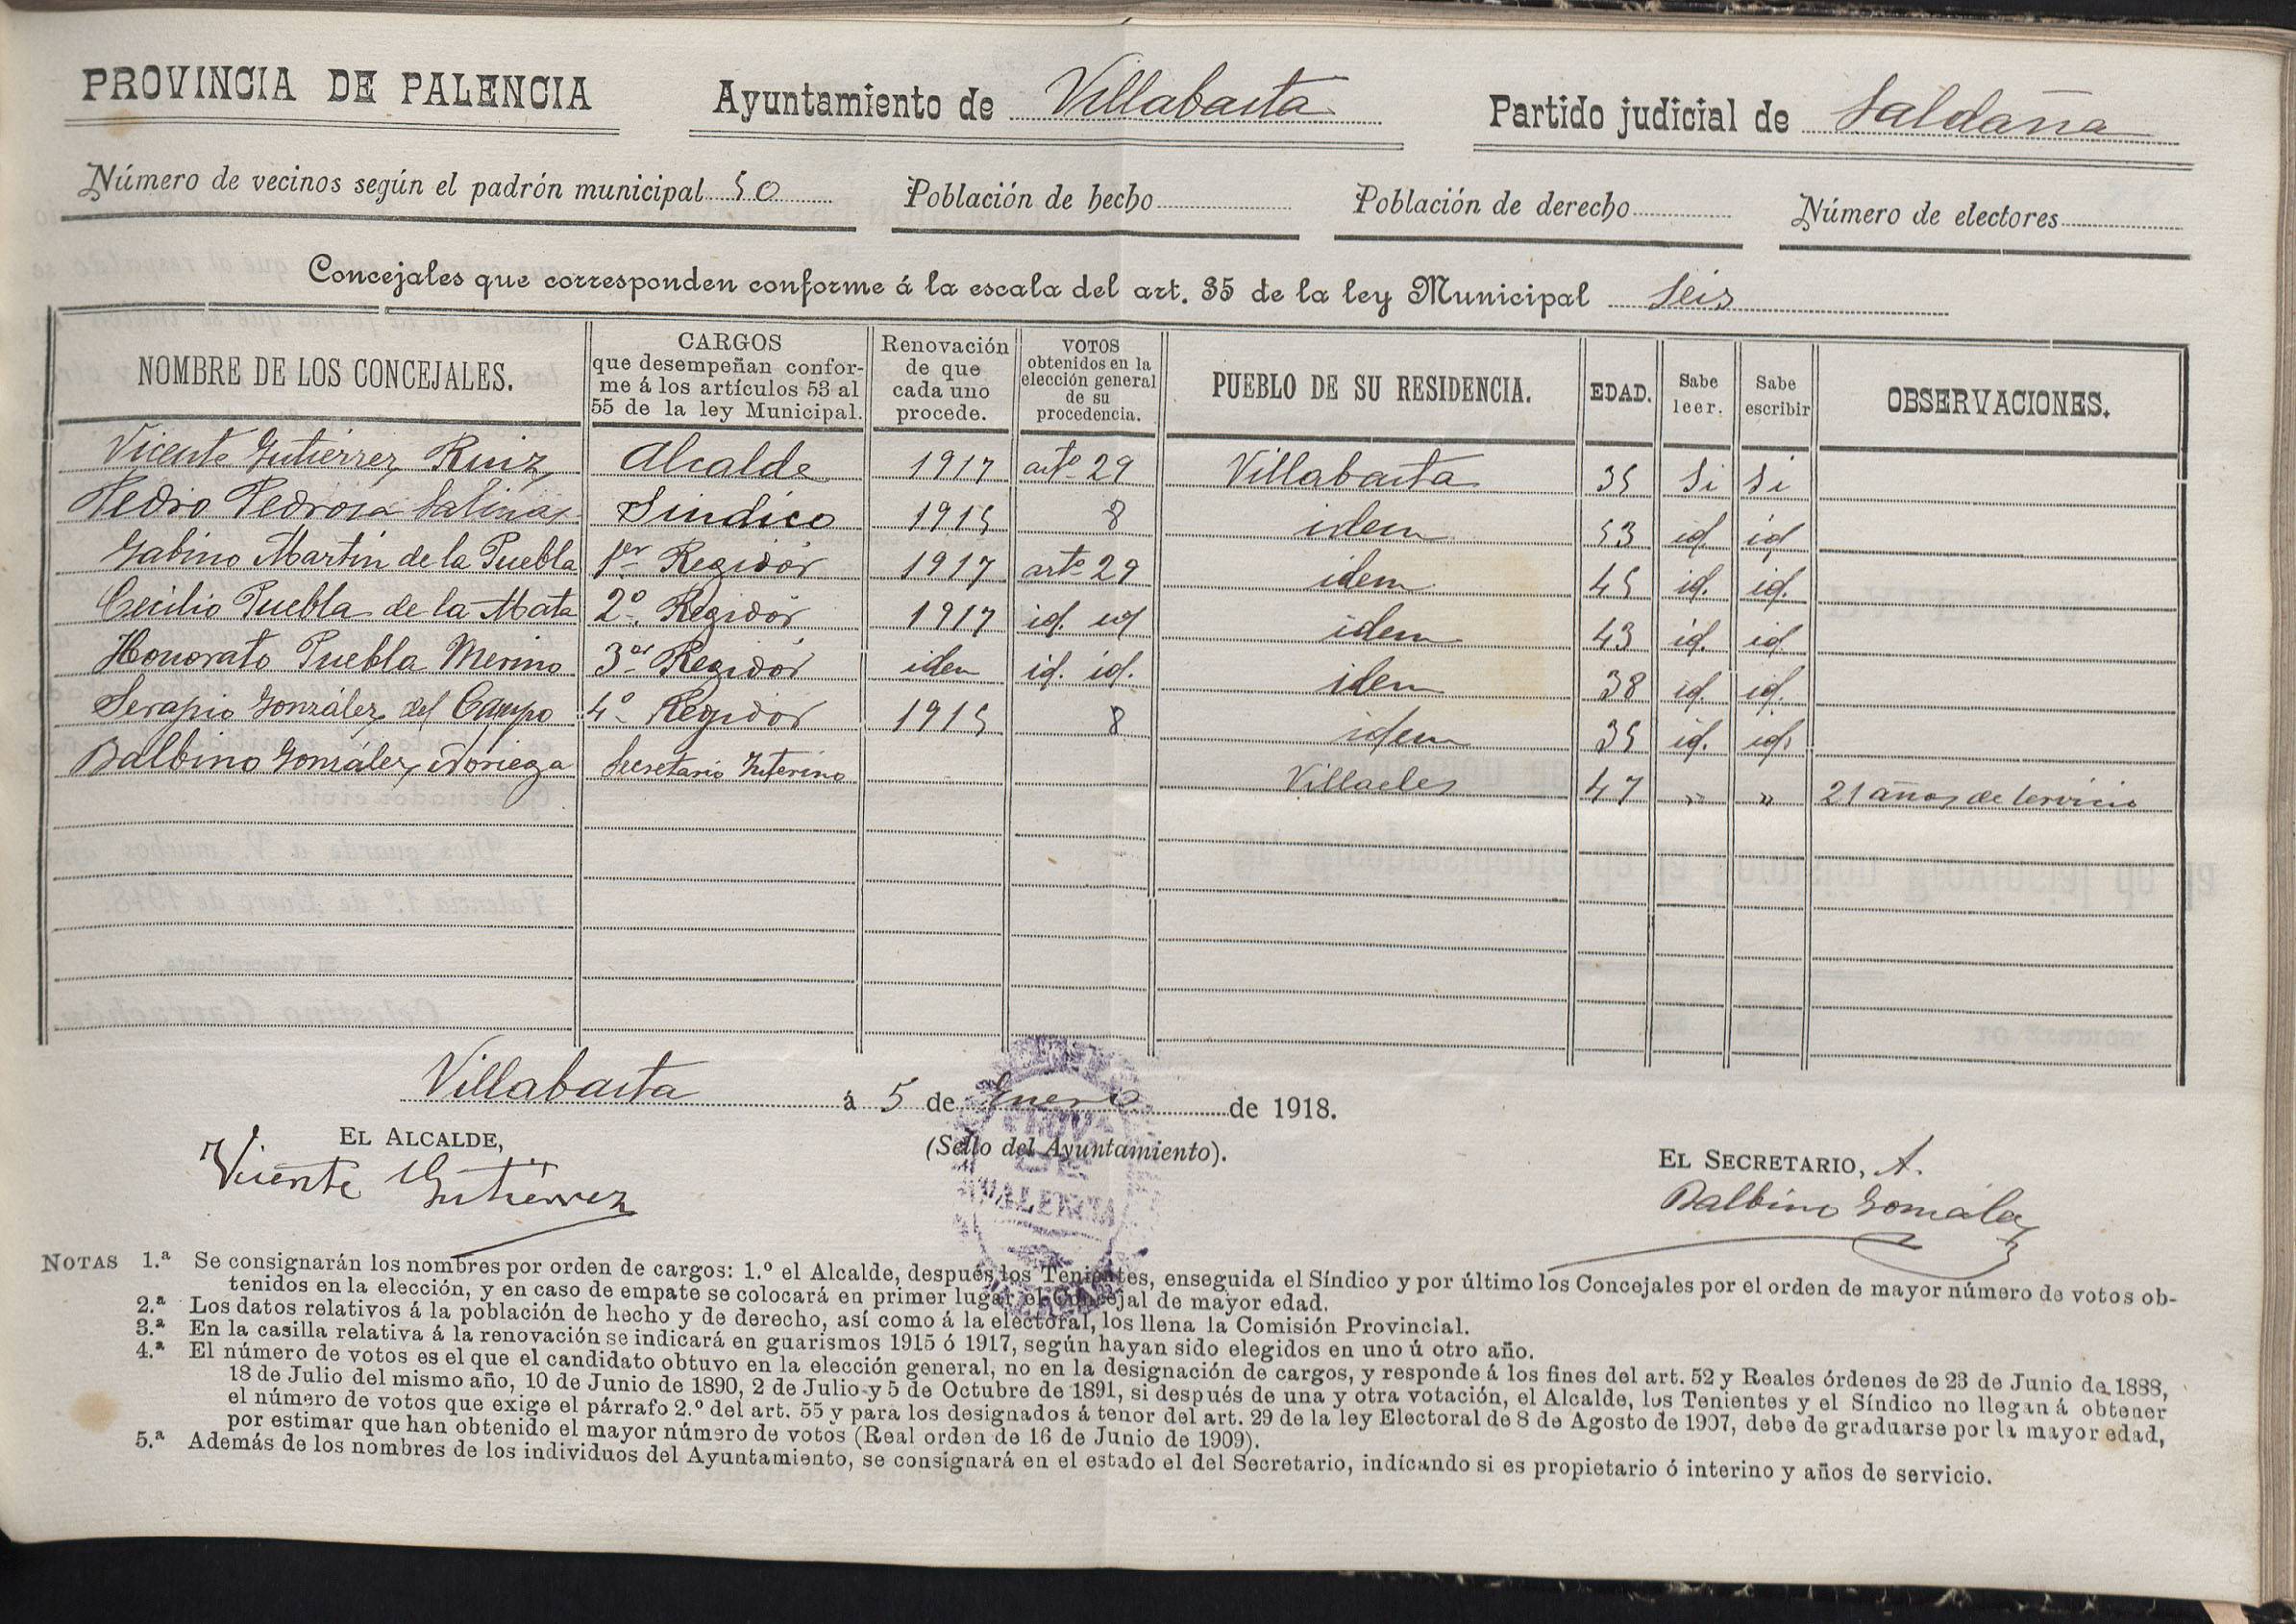 PROVINCIA DE PALENCIA Ayuntamiento de Villabasta Partido judicial de Saldaña
Número de vecinos según el padrón municipal 50 Población de hecho Población de derecho Número de electores
Concejales que corresponden conforme á la escala del art. 35 de la ley Municipal Seis
NOMBRE DE LOS CONCEJALES. CARGOS que desempeñan conforme á los artículos 53 al 55 de la ley Municipal. Renovación de que cada uno procede. VOTOS obtenidos en la elección general de su procedencia. PUEBLO DE SU RESIDENCIA. EDAD. Sabe leer. Sabe escribir OBSERVACIONES.
Vicente Gutiérrez Ruiz Alcalde 1917 arto 29 Villabasta 35 Si Si
Pedro Pedrosa Salinas Sindico 1915 8 idem 53 id id
Gabino Martin de la Puebla 1er Regidor 1917 arto 29 idem 45 id. id.
Cecilio Puebla de la Mata 2º Regidor 1917 id. id idem 43 id. id
Honorato Puebla Merino 3er Regidor idem id. id. idem 38 id. id.
Serapio González del Campo 4º Regidor 1915 8 idem 35 id. id.
Balbino González Noriega Secretario Interino Villaeles 47 " " 21 años de servicio
Villabasta á 5 de Enero de 1918.
EL ALCALDE, (Sello del Ayuntamiento). EL SECRETARIO, A.
Vicente Gutiérrez Balbino González
PALENCIA
NOTAS 1.ª Se consignarán los nombres por orden de cargos: 1.º el Alcalde, después los Tenientes, enseguida el Síndico y por último los Concejales por el orden de mayor número de votos ob-
tenidos en la elección, y en caso de empate se colocará en primer lugar el Concejal de mayor edad.
2.ª Los datos relativos á la población de hecho y de derecho, así como á la electoral, los llena la Comisión Provincial.
3.ª En la casilla relativa á la renovación se indicará en guarismos 1915 ó 1917, según hayan sido elegidos en uno ú otro año.
4.ª El número de votos es el que el candidato obtuvo en la elección general, no en la designación de cargos, y responde á los fines del art. 52 y Reales órdenes de 23 de Junio de 1888,
18 de Julio del mismo año, 10 de Junio de 1890, 2 de Julio y 5 de Octubre de 1891, si después de una y otra votación, el Alcalde, los Tenientes y el Síndico no llegan á obtener
el número de votos que exige el párrafo 2.º del art. 55 y para los designados á tenor del art. 29 de la ley Electoral de 8 de Agosto de 1907, debe de graduarse por la mayor edad,
por estimar que han obtenido el mayor número de votos (Real orden de 16 de Junio de 1909).
5.ª Además de los nombres de los individuos del Ayuntamiento, se consignará en el estado el del Secretario, indicando si es propietario ó interino y años de servicio.